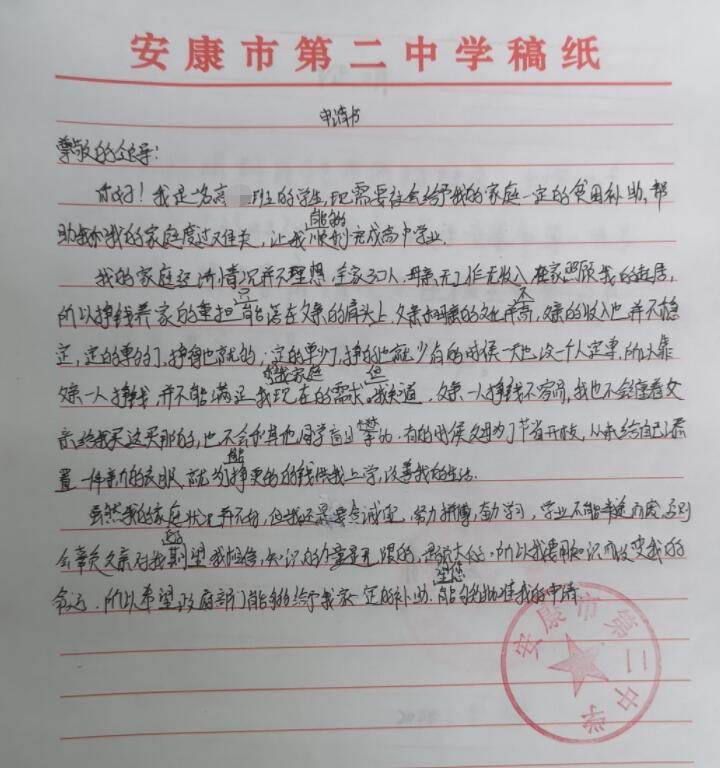 安康市第二中学稿纸
申请书
尊敬的领导:
你好!我是一名高 班的学生,现需要社会给予我的家庭一定的贫困补助,帮
助我和我的家庭度过难关,让我能够顺利完成高中学业.
我的家庭经济情况并不理想,全家三口人,母亲无工作无收入在家照顾我的起居,
所以挣钱养家的重担只能落在父亲的肩头上,父亲和母亲的文化不高,父亲的收入也并不稳
定,定的单多了,挣得也就多的;定的单少了,挣的也就少有的时候一天也没一个人定单,所以靠
父亲一人挣钱,并不能满足我家庭现在的需求,但我知道,父亲一人挣钱不容易,我也不会缠着父
亲给我买这买那的,也不会和其他同学盲目攀的.有的时候父母为了节省开枝,从未给自己添
置一件新的衣服,就为能挣更多的钱供我上学,改善我的生活.
虽然我的家庭状况并不好,但我还需要真诚, 努力拼博,奋力学习,学业不能半途而废,否则
会辜负父亲对我的期望我相信,知识的力量是无限的,是强大的,所以我要用知识而改变我的
命运.所以希望政府部门能够给予我家一定的补助.望您能够批准我的申请.
安康市第二中学